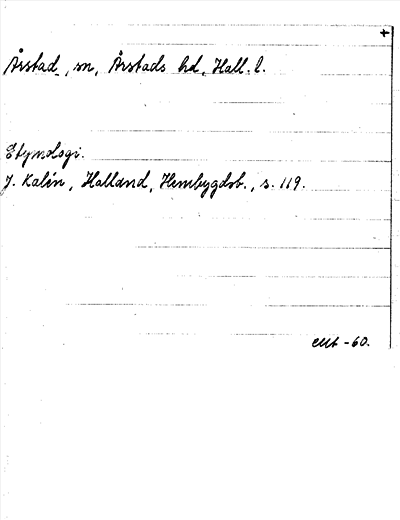 +
Årstad, sn, Årstads hd, Hall. l.
Etymologi.
J. Kalén, Halland, Hembygdsb., s. 119.
-60.